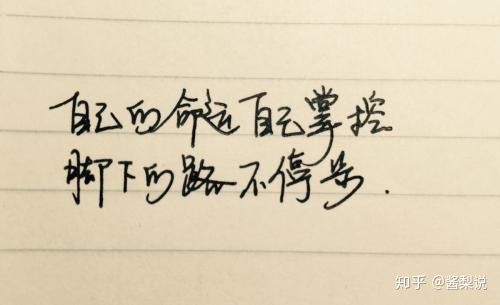 自己的命运自己掌控
脚下的路不停歩.
知乎 @酱梨说